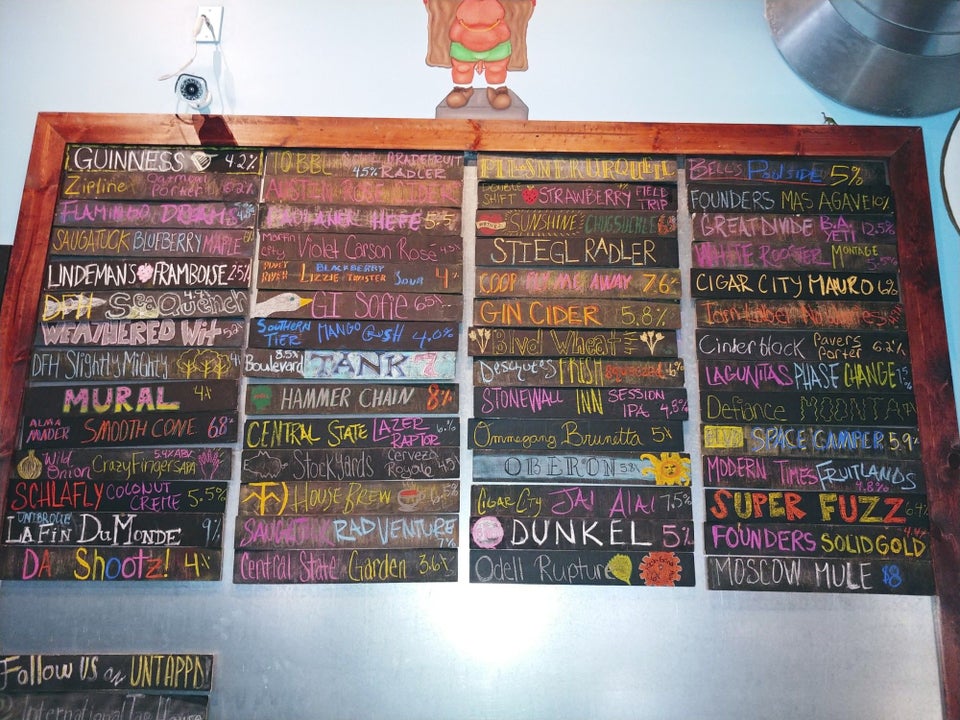 GUINNESS 4.2%
Zipline Oatmeal Porter
FLAMINGO DREAMS
SAUGATUCK BLUEBERRY MAPLE
LINDEMAN'S FRAMBOISE 2.5%
DFH SeaQuench
WEATHERED Wit
DFH Slightly Mighty
MURAL 4%
ALMA MADER SMOOTH CONE 6.8%
Wild Onion Crazy Fingers
SCHLAFLY COCONUT CREME 5.5%
UNIBROUE LA FIN DU MONDE 9%
DA Shootz! 4%
GRAPEFRUIT RADLER 4.5%
HEFE 5.5
Violet Carson Rose
BLACKBERRY LIZZIE TWISTER Sour 4%
GI Sofie 6.5%
SOUTHERN TIER MANGO CUSH 4.6%
Boulevard 8.5% TANK 7
HAMMER CHAIN 8%
CENTRAL STATE LAZER RAPTOR
Stockyards Cerveza Royale
HOUSE BREW
SAUGATUCK RADVENTURE 7%
Central State Garden 3.6%
PILSNER URQUELL
DOUBLE SHIFT STRAWBERRY FIELD TRIP
SUNSHINE CHUGSUCKLE
STIEGL RADLER
COOP AWAY 7.6%
GIN CIDER 5.8%
Blvd Wheat
Deschutes FRESH SQUEEZED
STONEWALL INN SESSION IPA 4.8%
Ommegang Brunetta 5%
OBERON 5.8
CIGAR CITY JAI ALAI 7.5%
DUNKEL 5%
Odell Rupture
BELL'S POOLSIDE 5%
FOUNDERS MAS AGAVE 10%
GREAT DIVIDE B.A. YETI 12.5%
WHITE ROOSTER MONTAGE
CIGAR CITY MAURO 6%
Cinderblock Pavers Porter 6.2%
LAGUNITAS PHASE CHANGE
Defiance
BLVD SPACE CAMPER 5.9%
MODERN TIMES FRUITLANDS 4.8%
SUPER FUZZ 6.4%
FOUNDERS SOLID GOLD 4.4%
MOSCOW MULE $8
Follow US on UNTAPPD!
International Tap House